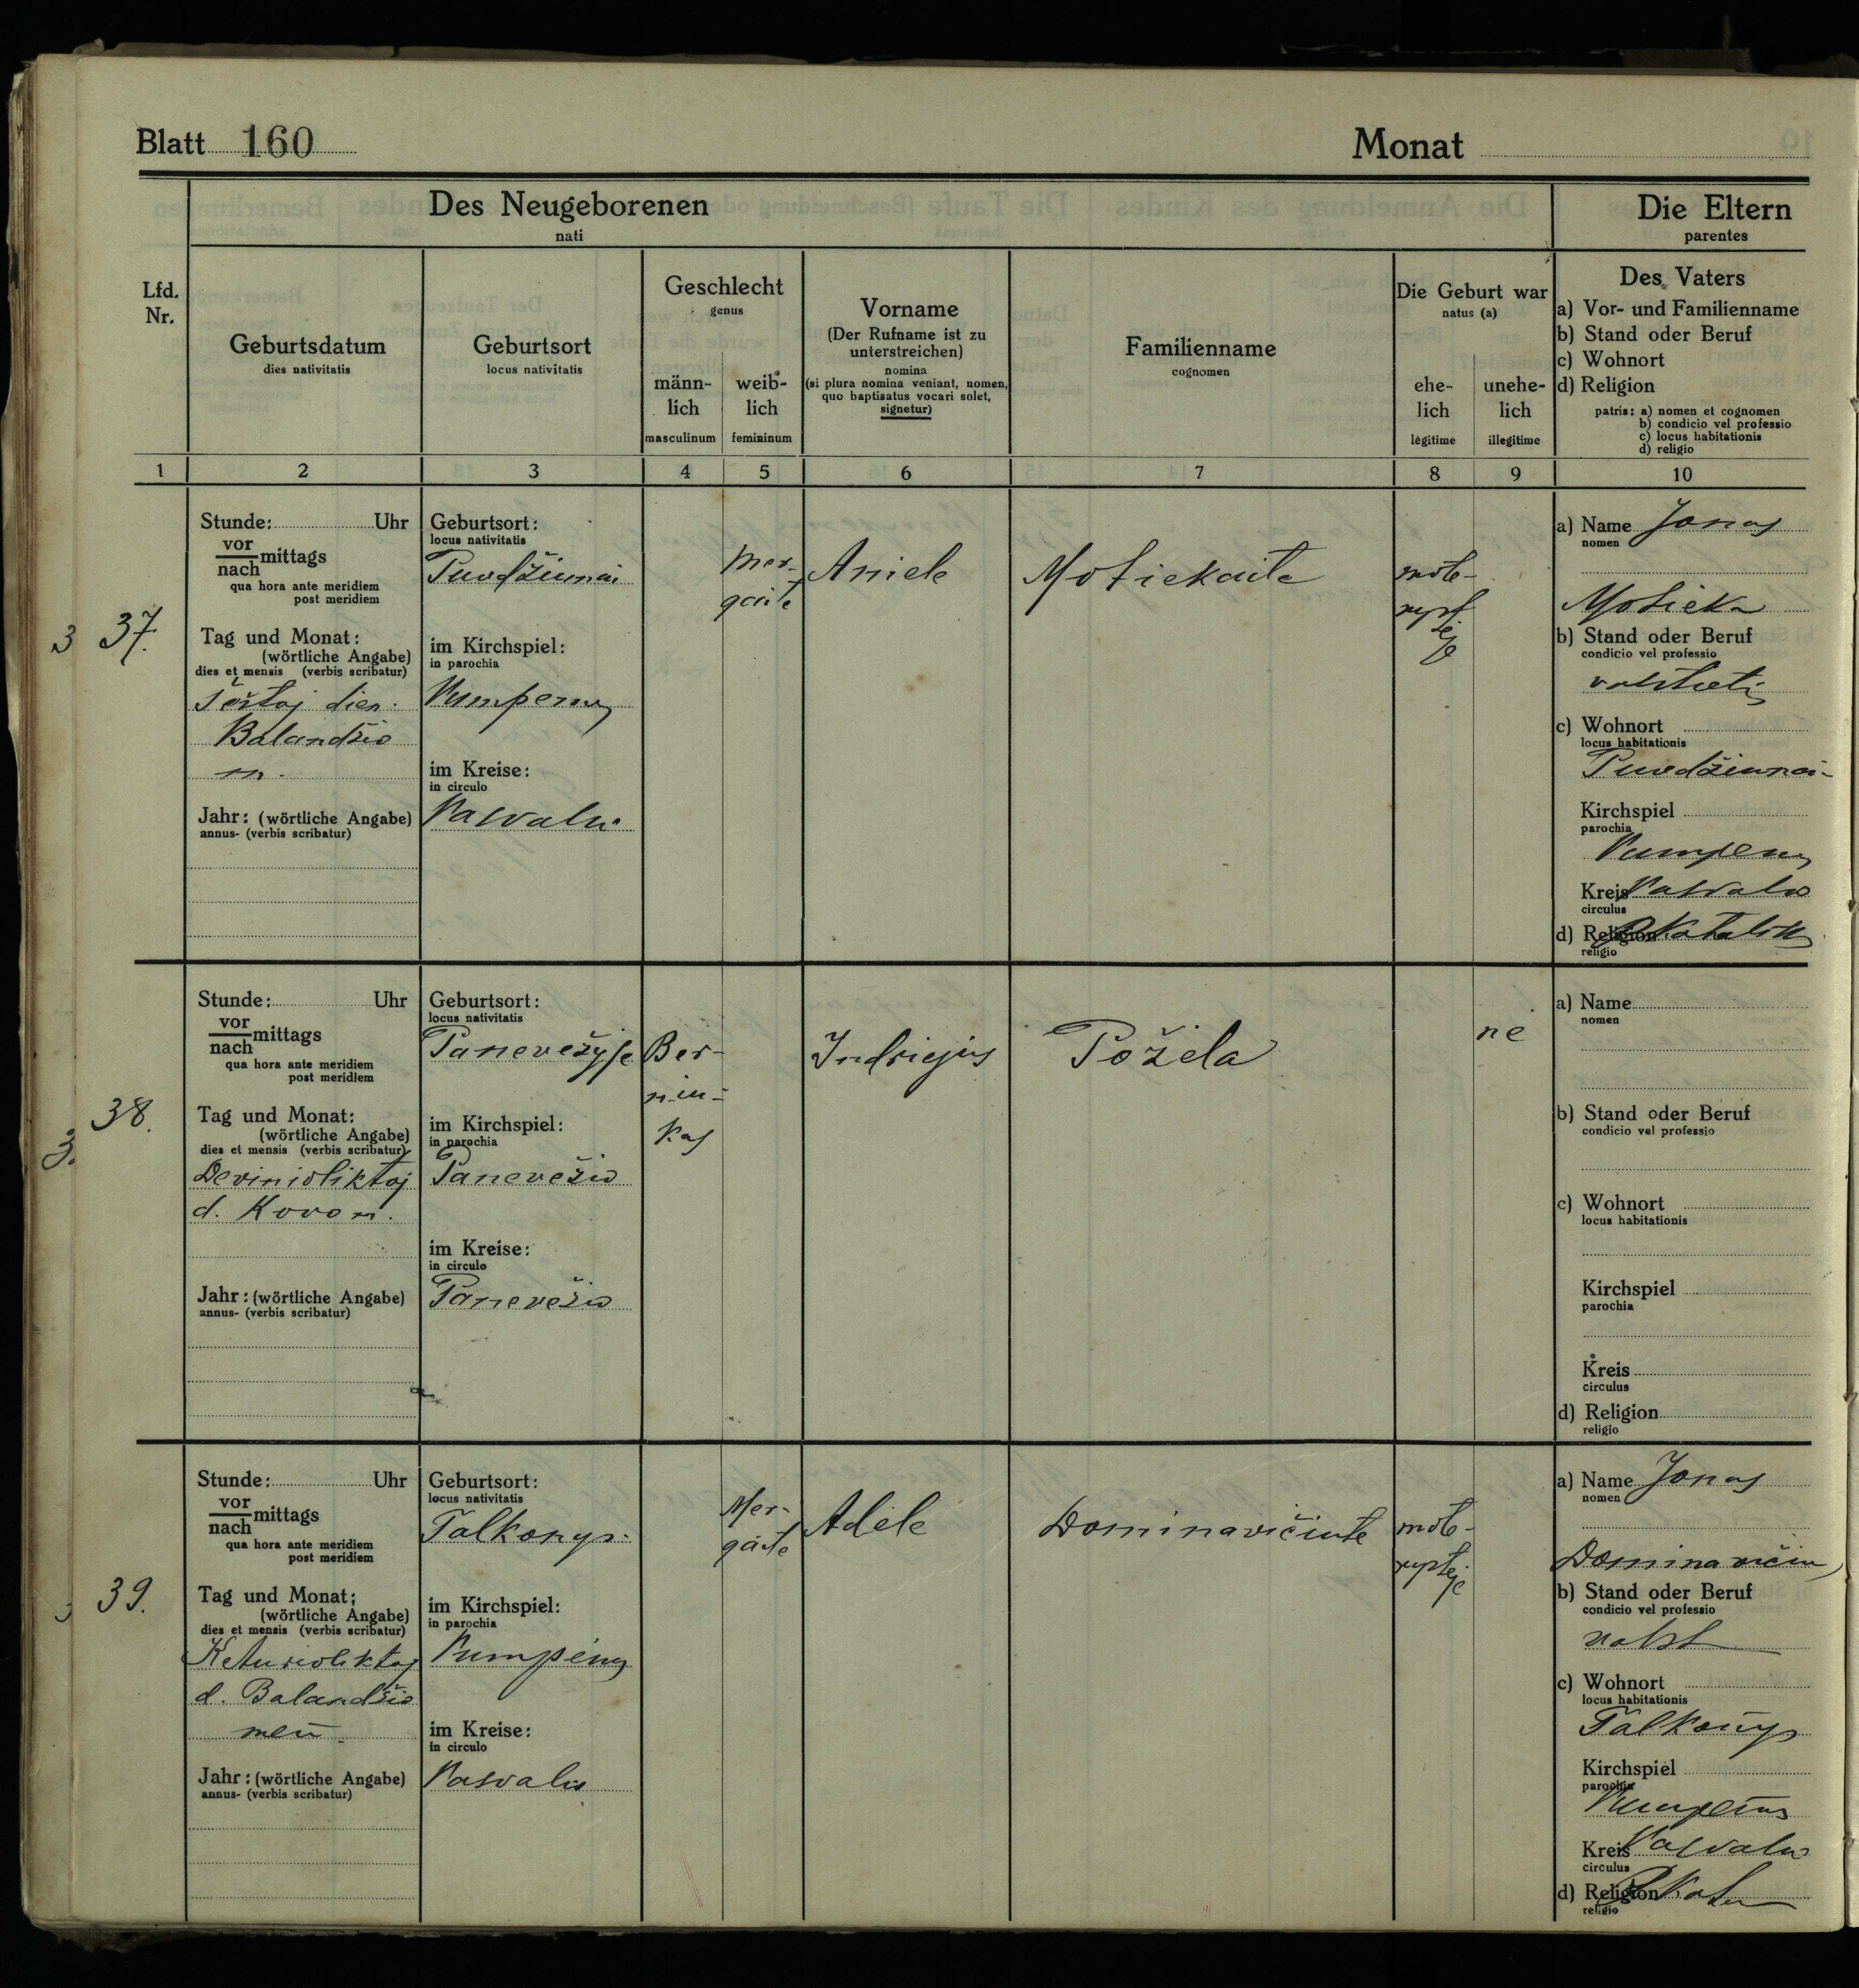 Blatt 160
Monat
Des Neugeborenen
nati
Die Eltern
parentes
Lfd.
Nr.
Geburtsdatum
dies nativitatis
Geburtsort
locus nativitatis
Geschlecht
genus
männ-
lich
masculinum
weib-
lich
femininum
Vorname
(Der Rufname ist zu
unterstreichen)
nomina
(si plura nomina veniant, nomen,
quo baptisatus vocari solet,
signetur)
Familienname
cognomen
Die Geburt war
natus (a)
ehe-
lich
légitime
unehe-
lich
illegitime
Des Vaters
a) Vor- und Familienname
b) Stand oder Beruf
c) Wohnort
d) Religion
patris: a) nomen et cognomen
b) condicio vel professio
c) locus habitationis
d) religio
1 2 3 4 5 6 7 8 9 10
3 37.
Stunde: Uhr
vor
nach mittags
qua hora ante meridiem
post meridiem
Tag und Monat:
(wörtliche Angabe)
dies et mensis (verbis scribatur)
šeštoj dien.
Balandžio
m.
Jahr: (wörtliche Angabe)
annus- (verbis scribatur)
Geburtsort:
locus nativitatis
Puodžiunai
im Kirchspiel:
in parochia
Pumpenų
im Kreise:
in circulo
Pasvalio
Mer-
gaite
Aniele
Motiekaite
mote-
ryst.
ėje
a) Name Jonas
nomen
Motieka
b) Stand oder Beruf
condicio vel professio
valstietis
c) Wohnort
locus habitationis
Puodžiunai
Kirchspiel
parochia
Pumpenų
Kreis Pasvalio
circulus
d) Religion R Katalik
religio
3. 38.
Stunde: Uhr
vor
nach mittags
qua hora ante meridiem
post meridiem
Tag und Monat:
(wörtliche Angabe)
dies et mensis (verbis scribatur)
Devinioliktoj
d. Kovo m.
Jahr: (wörtliche Angabe)
annus- (verbis scribatur)
Geburtsort:
locus nativitatis
Panevežyje
im Kirchspiel:
in parochia
Panevežio
im Kreise:
in circulo
Panevežio
Ber-
niu-
kas
Indriejus
Požela
ne
a) Name
nomen
b) Stand oder Beruf
condicio vel professio
c) Wohnort
locus habitationis
Kirchspiel
parochia
Kreis
circulus
d) Religion
religio
39.
Stunde: Uhr
vor
nach mittags
qua hora ante meridiem
post meridiem
Tag und Monat:
(wörtliche Angabe)
dies et mensis (verbis scribatur)
Keturioliktoj
d. Balandžio
men
Jahr: (wörtliche Angabe)
annus- (verbis scribatur)
Geburtsort:
locus nativitatis
Talkonys
im Kirchspiel:
in parochia
Pumpėnų
im Kreise:
in circulo
Pasvalio
Mer-
gaite
Adelė
Dominavičiute
mote-
rystėje
a) Name Jonas
nomen
Dominavičiu
b) Stand oder Beruf
condicio vel professio
valst
c) Wohnort
locus habitationis
Talkonys
Kirchspiel
parochia
Pumpenų
Kreis Pasvalio
circulus
d) Religion R Kat
religio